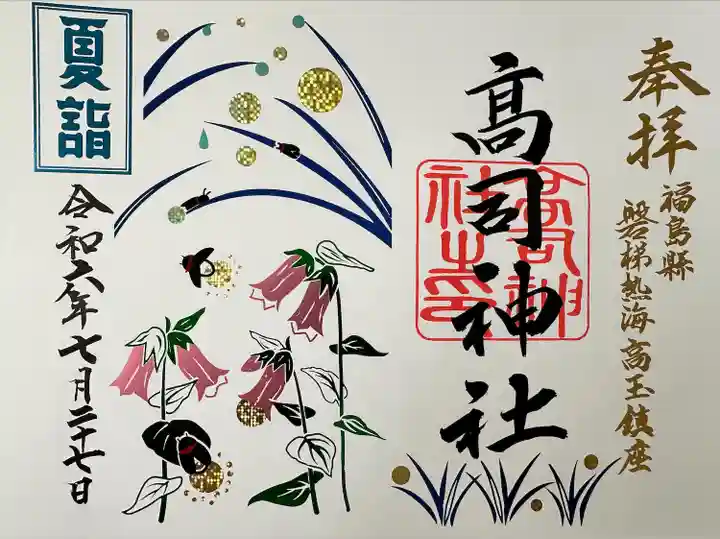 奉拝
福島縣
磐梯熱海高玉鎮座
高司神社
高司神社之印
夏詣
令和六年七月二十七日